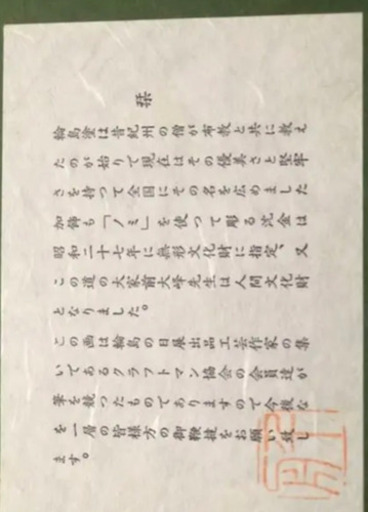 栞
輪島塗は昔紀州の僧が布教と共に教え
たのが始りて現在はその優美さと堅牢
さを持つて全国にその名を広めました
加飾も「ノミ」を使つて彫る沈金は
昭和二十七年に無形文化財に指定、又
この道の大家前大峰先生は人間文化財
となりました。
この画は輪島の日展出品工芸作家の集
いてあるクラフトマン協会の会員達が
筆を競つたものてありますので今後な
を一層の皆様方の御鞭撻をお願い致し
ます。